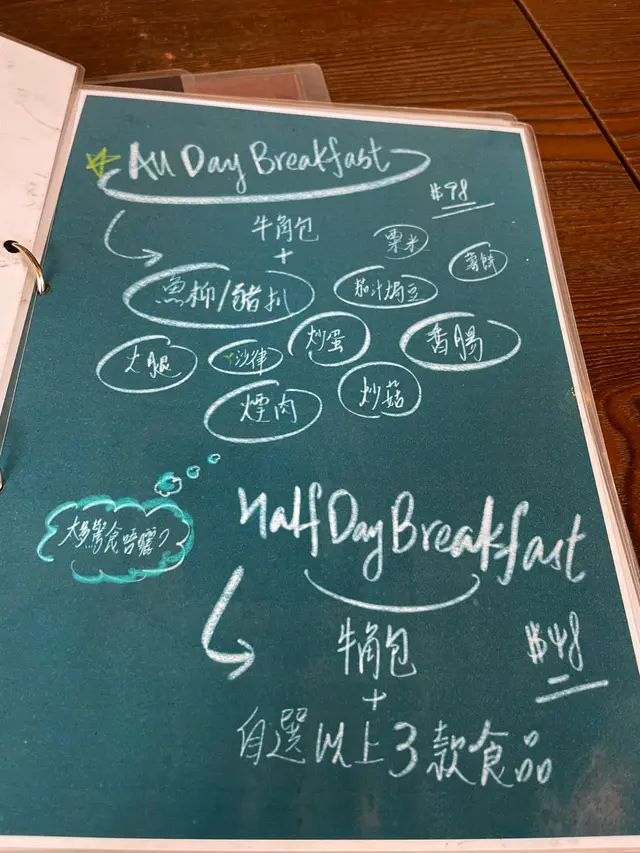 All Day Breakfast
$98
牛角包
+
粟米
薯餅
魚柳/豬扒
茄汁焗豆
火腿
沙律
炒蛋
香腸
煙肉
炒菇
太多驚食唔曬?
Half Day Breakfast
牛角包
$48
+
自選以上3款食品